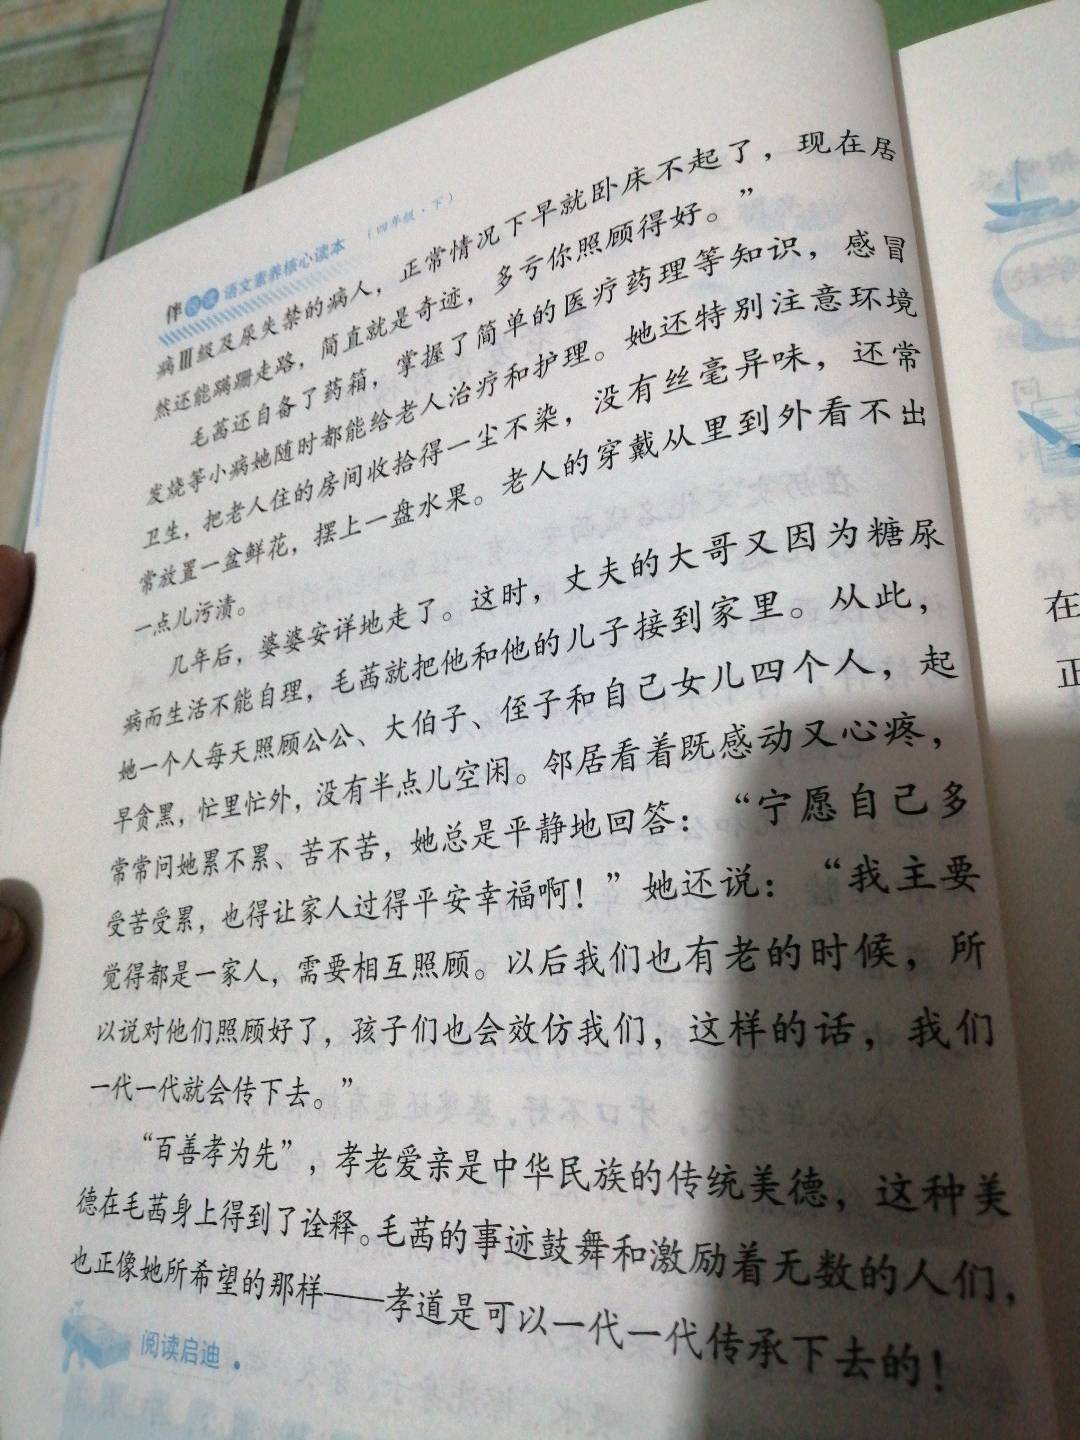 伴 语文素养核心读本 (四年级·下)
病Ⅲ级及尿失禁的病人，正常情况下早就卧床不起了，现在居
然还能蹒跚走路，简直就是奇迹，多亏你照顾得好。”
毛茜还自备了药箱，掌握了简单的医疗药理等知识，感冒
发烧等小病她随时都能给老人治疗和护理。她还特别注意环境
卫生，把老人住的房间收拾得一尘不染，没有丝毫异味，还常
常放置一盆鲜花，摆上一盘水果。老人的穿戴从里到外看不出
一点儿污渍。
几年后，婆婆安详地走了。这时，丈夫的大哥又因为糖尿
病而生活不能自理，毛茜就把他和他的儿子接到家里。从此，
她一个人每天照顾公公、大伯子、侄子和自己女儿四个人，起
早贪黑，忙里忙外，没有半点儿空闲。邻居看着既感动又心疼，
常常问她累不累、苦不苦，她总是平静地回答：“宁愿自己多
受苦受累，也得让家人过得平安幸福啊！”她还说：“我主要
觉得都是一家人，需要相互照顾。以后我们也有老的时候，所
以说对他们照顾好了，孩子们也会效仿我们，这样的话，我们
一代一代就会传下去。”
“百善孝为先”，孝老爱亲是中华民族的传统美德，这种美
德在毛茜身上得到了诠释。毛茜的事迹鼓舞和激励着无数的人们，
也正像她所希望的那样——孝道是可以一代一代传承下去的！
阅读启迪
在
正